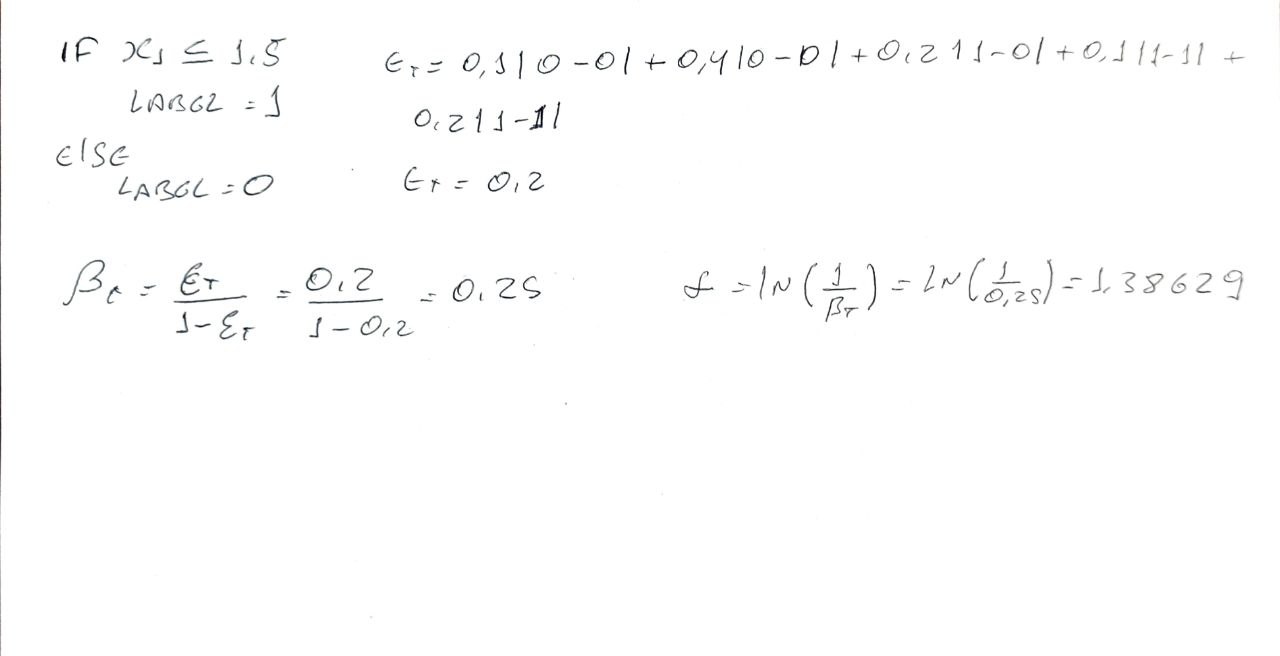 IF x1 ≤ 1.5
LABEL = 1
ELSE
LABEL = 0
ET = 0,1|0-0| + 0,4|0-0| + 0,2|1-0| + 0,1|1-1| +
0,2|1-1|
ET = 0,2
βt = ET / 1-ET = 0,2 / 1-0,2 = 0,25
f = ln(1/βT) = ln(1/0,25) = 1,38629